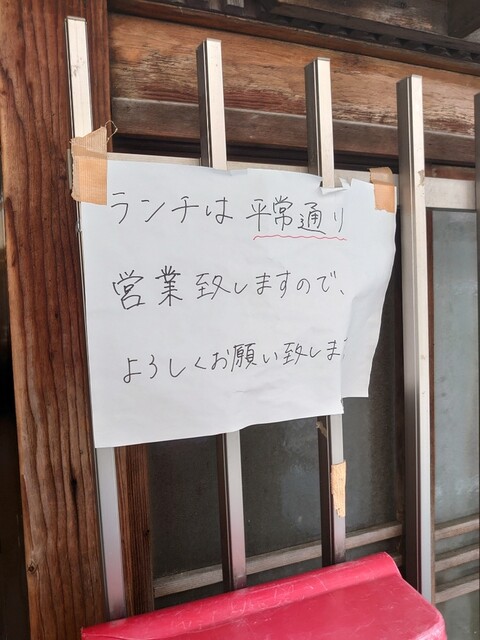 ランチは平常通り
営業致しますので、
よろしくお願い致しま